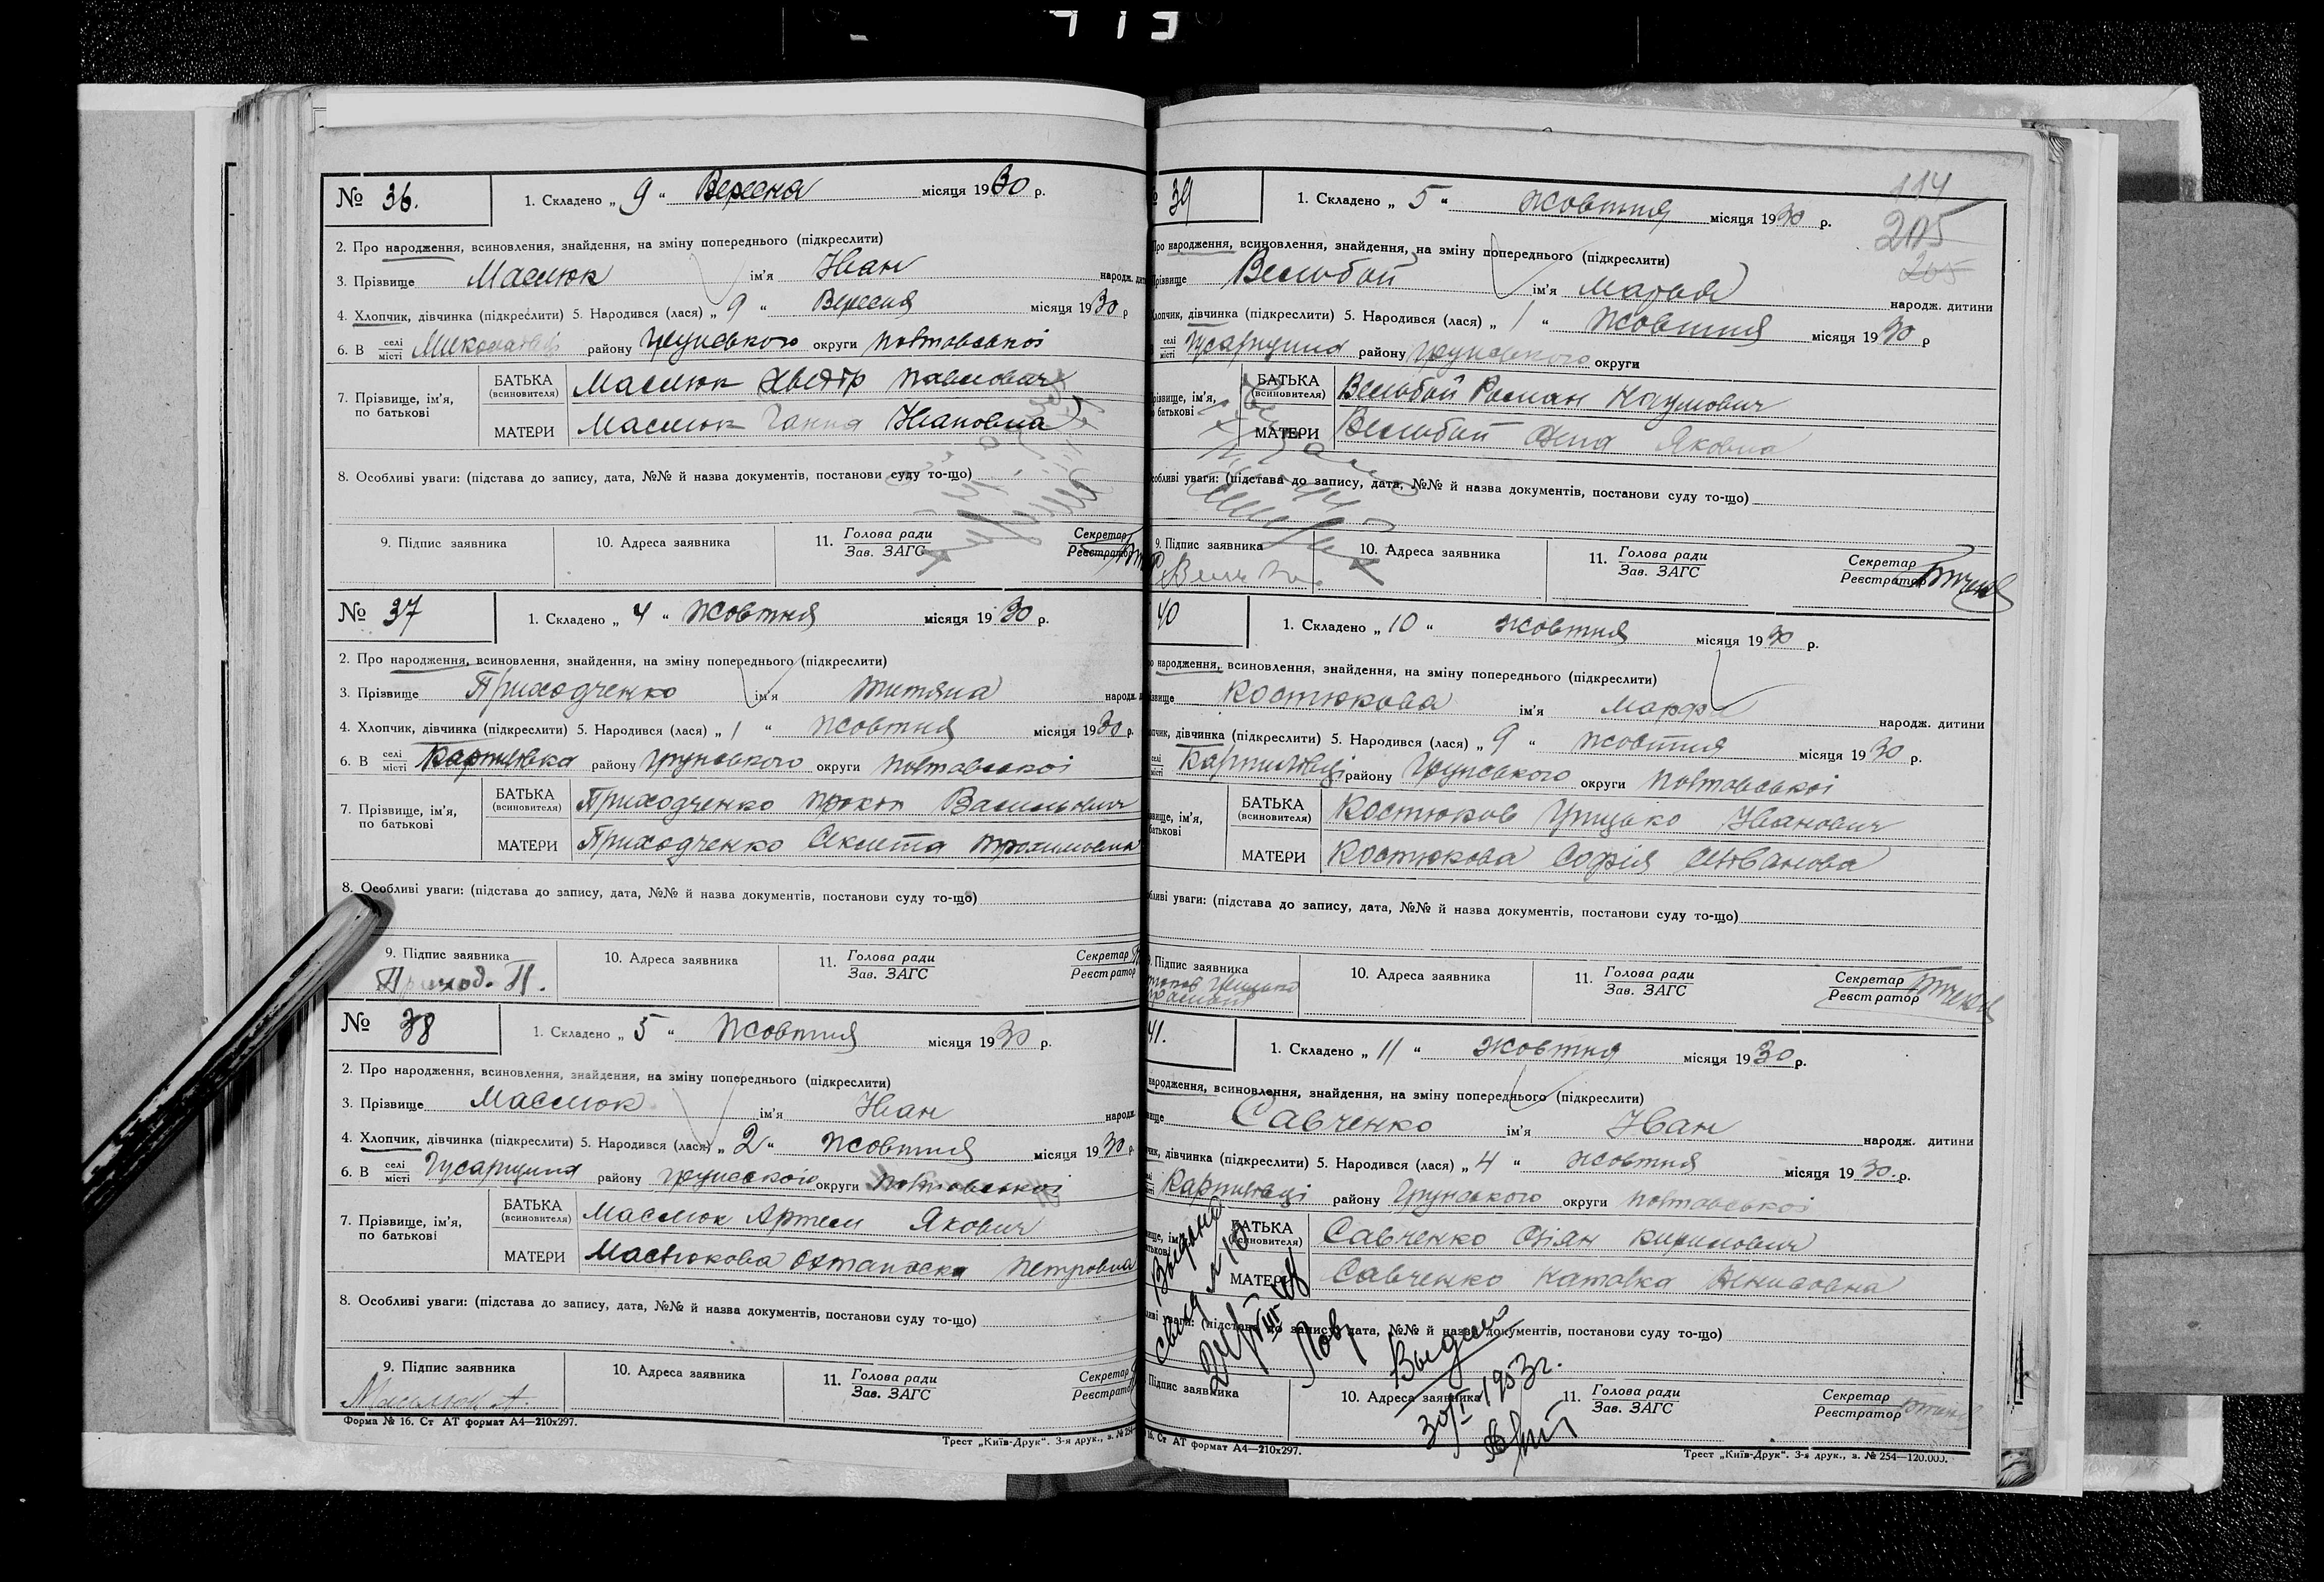 № 36.
1. Складено „ 9 “ Вересня місяця 1930 р.
2. Про народження, всиновлення, знайдення, на зміну попереднього (підкреслити)
3. Прізвище Маслюк ім'я Іван народж. дит
4. Хлопчик, дівчинка (підкреслити) 5. Народився (лася) „ 9 “ Вересня місяця 1930 р
6. В селі місті району Грунського округи Полтавської
7. Прізвище, ім'я, по батькові
БАТЬКА (всиновителя) Маслюк Павлович
МАТЕРИ Маслюк Ганна Івановна
8. Особливі уваги: (підстава до запису, дата, №№ й назва документів, постанови суду то-що)
9. Підпис заявника
10. Адреса заявника
11. Голова ради Зав. ЗАГС
Секретар Реєстратор
№ 37
1. Складено „ 4 “ Жовтня місяця 1930 р.
2. Про народження, всиновлення, знайдення, на зміну попереднього (підкреслити)
3. Прізвище Приходченко ім'я Титяна народж. д
4. Хлопчик, дівчинка (підкреслити) 5. Народився (лася) „ 1 “ Жовтня місяця 1930 р.
6. В селі місті Карпилівка району Грунського округи Полтавської
7. Прізвище, ім'я, по батькові
БАТЬКА (всиновителя) Приходченко Прокоп Васильович
МАТЕРИ Приходченко Секлета Трохимовна
8. Особливі уваги: (підстава до запису, дата, №№ й назва документів, постанови суду то-що)
9. Підпис заявника
Приход. П.
10. Адреса заявника
11. Голова ради Зав. ЗАГС
Секретар Реєстратор
№ 38
1. Складено „ 5 “ Жовтня місяця 1930 р.
2. Про народження, всиновлення, знайдення, на зміну попереднього (підкреслити)
3. Прізвище Маслюк ім'я Іван народж.
4. Хлопчик, дівчинка (підкреслити) 5. Народився (лася) „ 2 “ Жовтня місяця 1930 р
6. В селі місті Гусарщина району Грунського округи Полтавської
7. Прізвище, ім'я, по батькові
БАТЬКА (всиновителя) Маслюк Артем Якович
МАТЕРИ Маслюкова Петровна
8. Особливі уваги: (підстава до запису, дата, №№ й назва документів, постанови суду то-що)
9. Підпис заявника
Маслюк А.
10. Адреса заявника
11. Голова ради Зав. ЗАГС
Секретар Реєстратор
Форма № 16. Ст АТ формат А4—210х297.
Трест „Київ-Друк“. 3-я друк., з. № 254
114
205
205
39
1. Складено „ 5 “ Жовтня місяця 1930 р.
Про народження, всиновлення, знайдення, на зміну попереднього (підкреслити)
Прізвище Вельбой ім'я Марья народж. дитини
Хлопчик, дівчинка (підкреслити) 5. Народився (лася) „ 1 “ Жовтня місяця 1930 р
селі місті Гусарщина району Грунського округи
різвище, ім'я, о батькові
БАТЬКА (всиновителя) Вельбой Роман Наумович
МАТЕРИ Вельбой Яковна
собливі уваги: (підстава до запису, дата, №№ й назва документів, постанови суду то-що)
9. Підпис заявника
10. Адреса заявника
11. Голова ради Зав. ЗАГС
Секретар Реєстратор
40
1. Складено „ 10 “ Жовтня місяця 1930 р.
о народження, всиновлення, знайдення, на зміну попереднього (підкреслити)
звище Костюкова ім'я Марфа народж. дитини
пчик, дівчинка (підкреслити) 5. Народився (лася) „ 9 “ Жовтня місяця 1930 р.
селі місті Карпилівці району Грунського округи Полтавської
вище, ім'я, батькові
БАТЬКА (всиновителя) Костюков Грицько Іванович
МАТЕРИ Костюкова Софія
бливі уваги: (підстава до запису, дата, №№ й назва документів, постанови суду то-що)
9. Підпис заявника
10. Адреса заявника
11. Голова ради Зав. ЗАГС
Секретар Реєстратор
41.
1. Складено „ 11 “ Жовтня місяця 1930 р.
народження, всиновлення, знайдення, на зміну попереднього (підкреслити)
вище Савченко ім'я Іван народж. дитини
чик, дівчинка (підкреслити) 5. Народився (лася) „ 4 “ Жовтня місяця 1930 р.
Карпилівці району Грунського округи Полтавської
вище, ім атькові
БАТЬКА (всиновителя) Савченко Кирилович
МАТЕРИ Савченко
ливі уваги: (підстава до запису, дата, №№ й назва документів, постанови суду то-що)
Выдано
30/I 1953 г.
Підпис заявника
10. Адреса заявника
11. Голова ради Зав. ЗАГС
Секретар Реєстратор
16. Ст АТ формат А4—210х297.
Трест „Київ-Друк“. 3-я друк., з. № 254—120.000.